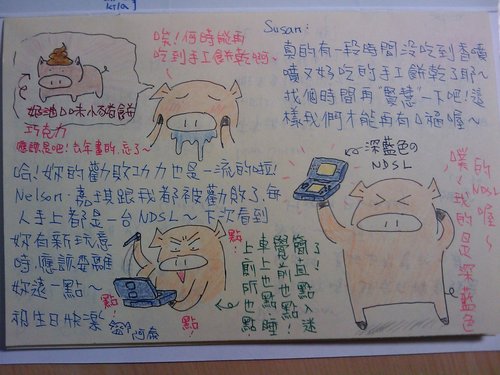 唉！何時能再
吃到手工餅乾啊～
Susan:
真的有一段時間沒吃到香噴
噴又好吃的手工餅乾了耶～
找個時間再"賢慧"一下吧！這
樣我們才能再有口福喔～
奶油口味小豬餅
巧克力
應該是吧！去年畫的忘了～
哈！妳的勸敗功力也是一流的啦！
Nelson、嘉琪跟我都被勸敗了，每
人手上都是一台NDSL～下次看到
妳有新玩意
時，應該要離
妳遠一點～
祝生日快樂
阿泰
點！
點！
點！
上廁所也點！
車上也點！睡
覺前也點！
簡直點入迷
了！
深藍色の
NDSL
噗！
的NDSL喔～
我的是深藍色